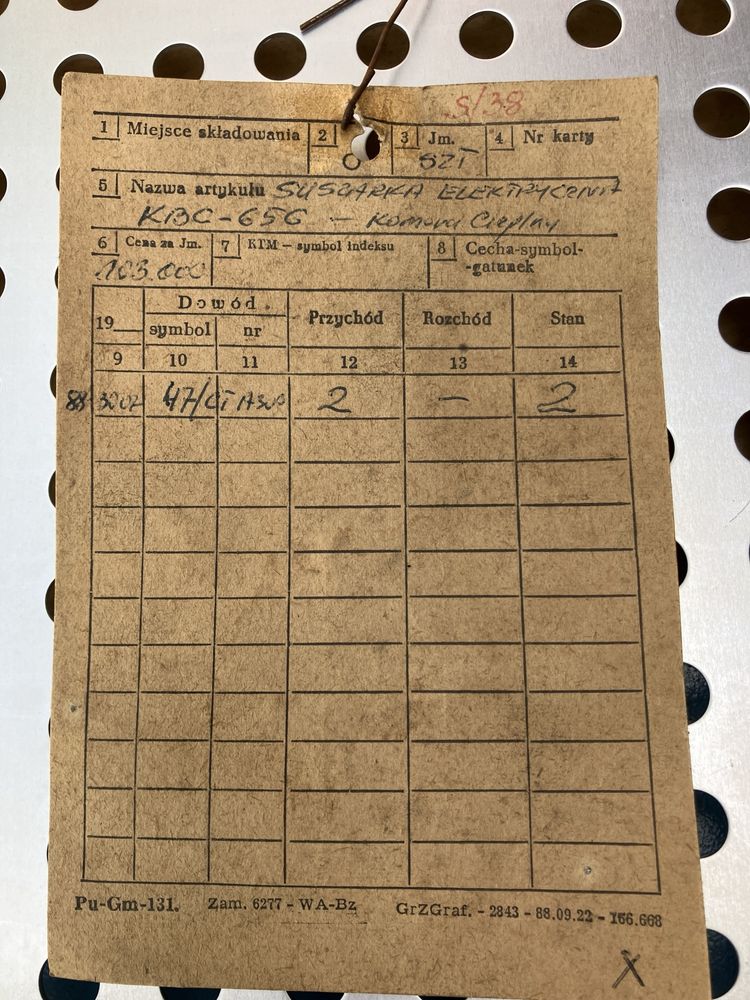 S/38
1 Miejsce składowania 2 3 Jm. 4 Nr karty
SZT
5 Nazwa artykułu SUSZARKA ELEKTRYCZNA
KBC-65G - Komora Cieplna
6 Cena za Jm. 7 KTM - symbol indeksu 8 Cecha-symbol-
-gatunek
103.000
19__ Dowód Przychód Rozchód Stan
symbol nr
9 10 11 12 13 14
88 47/ 2 - 2
Pu-Gm-131. Zam. 6277 - WA-Bz GrZGraf. - 2843 - 88.09.22 - 166.668
X